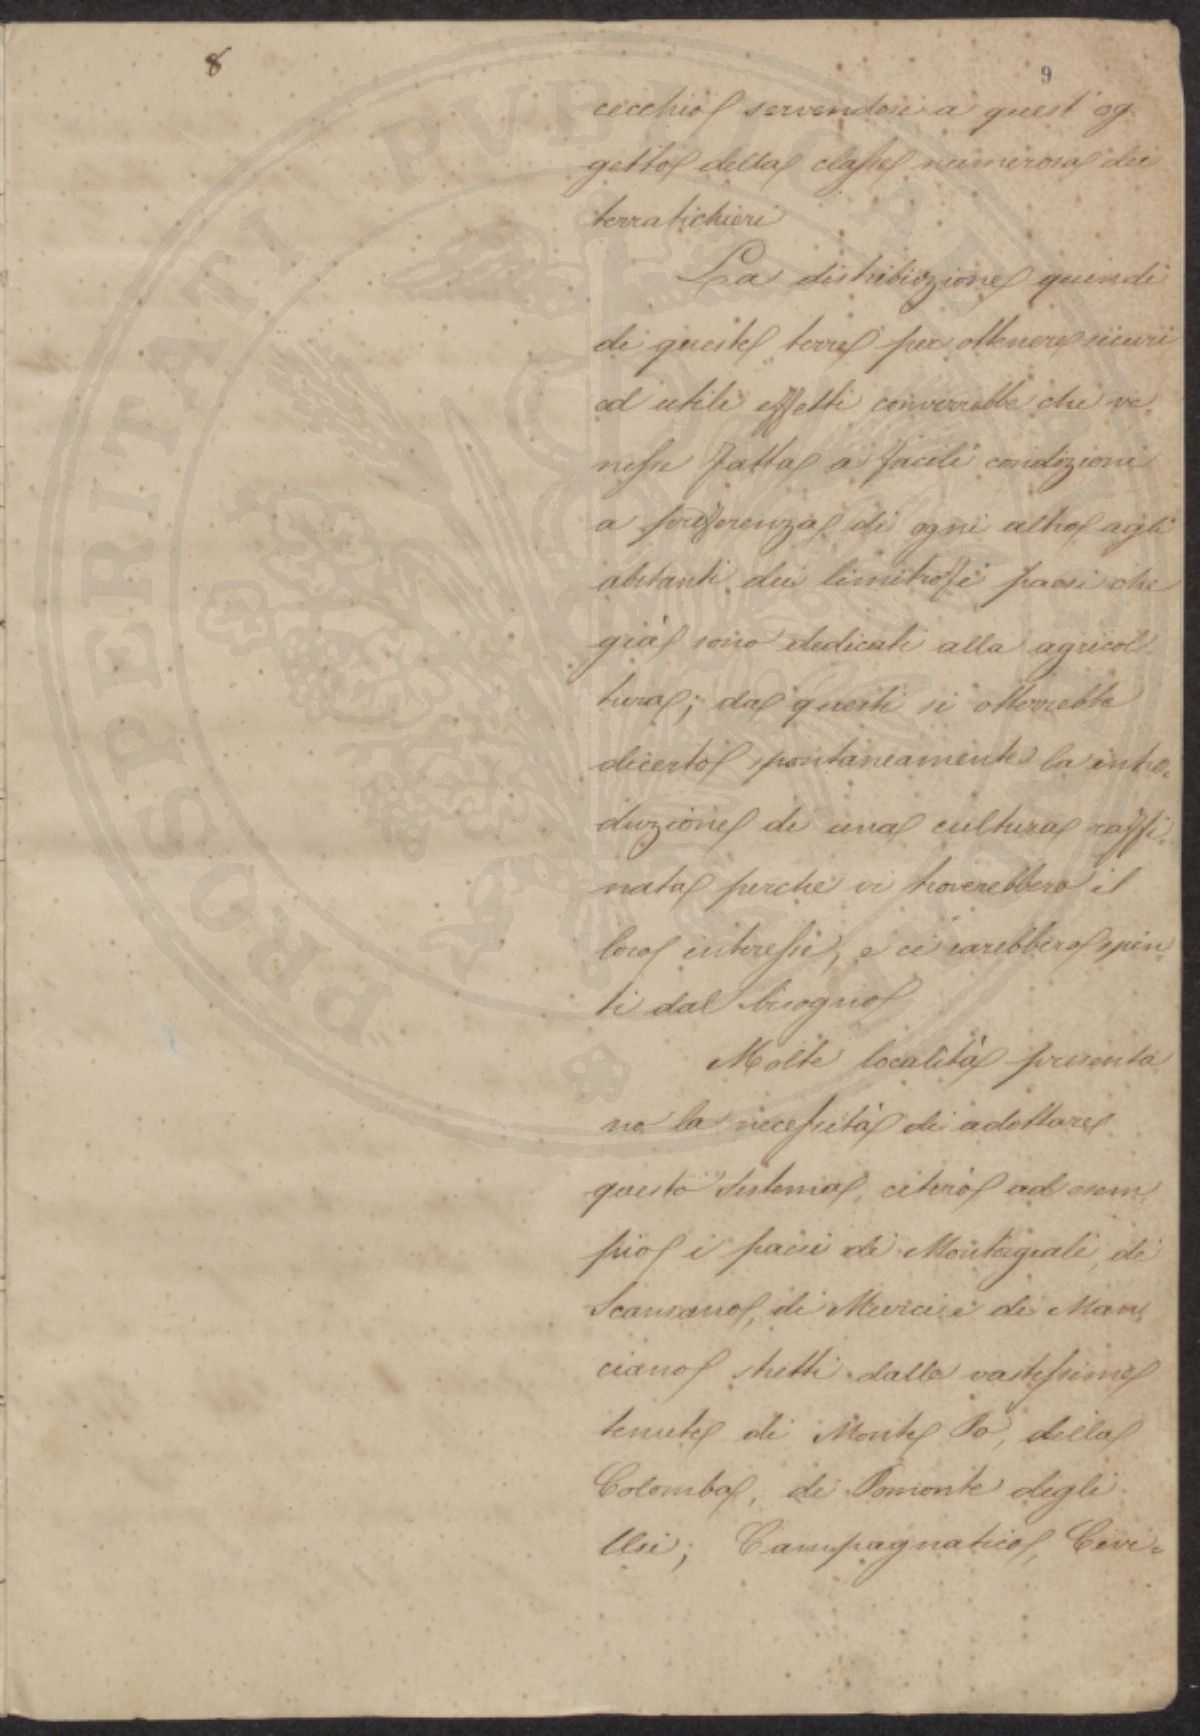 8
9
cecchio servendosi a quest' og
getto della classe numerosa dei
terratichieri
La distribuzione quindi
di queste terre per ottenere sicuri
ed utili effetti converrebbe che ve
nisse fatta a facili condizioni
a preferenza di ogni altro agli
abitanti dei limitrofi paesi che
già sono dedicati alla agricol
tura; da questi si otterrebbe
dicerto spontaneamente la intro=
duzione di una cultura raffi=
nata perche vi troverebbero il
loro interesse, e ci sarebbero spin=
ti dal bisogno
Molte località presenta
no la necessità di adottare
questo sistema, citerò ad esem
pio i paesi di Montagiali, di
Scansano, di Murci e di Man
ciano stretti dalle vastissime
tenute di Monte Po, della
Colomba, di Pomonte degli
Usi; Campagnatico, Civi=
PROSPERITATI PUBLICAE